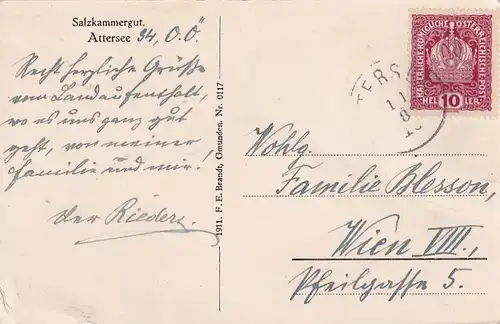 Salzkammergut.
Attersee 94, O.Ö
Recht herzliche Grüße
vom Landaufenthalt,
wo es uns ganz gut
geht, von meiner
Familie und mir!
der Rieder
1911. F. E. Brandt, Gmunden. Nr. 0117
KAISERLICHE KÖNIGLICHE ÖSTERREICHISCHE POST
HEL 10 LER
Wohlg.
Familie Blesson,
Wien VIII.,
Pfeilgasse 5.